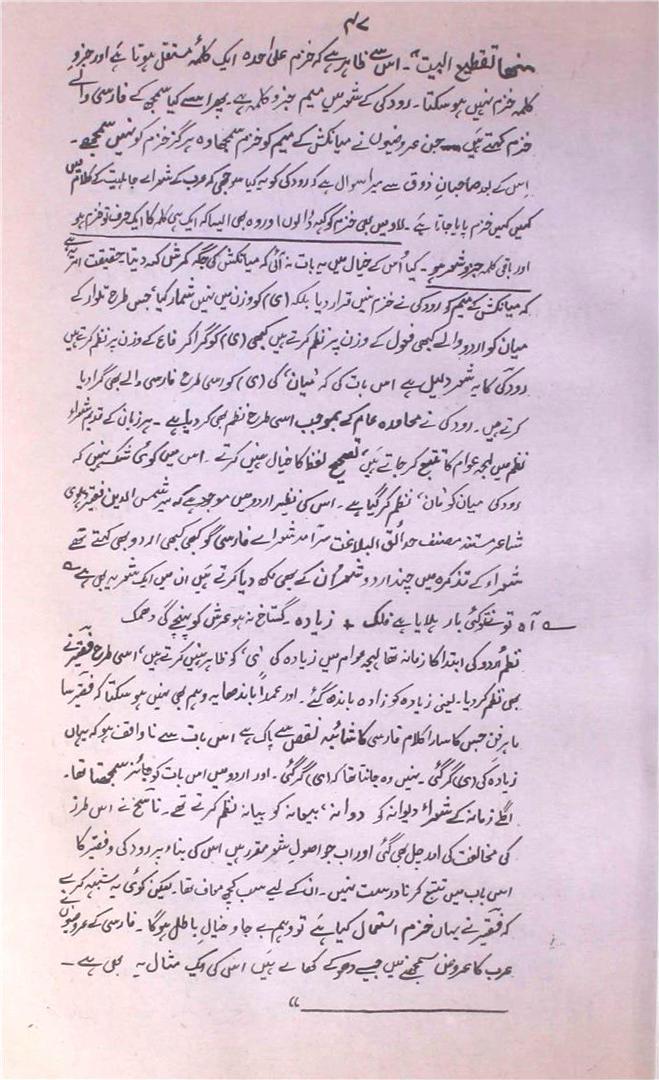 ۴۷
منھا تقطیع البیت“۔ اس سے ظاہر ہے کہ خزم علٰحدہ ایک کلمۂ مستقل ہوتا ہے اور جزوِ
کلمہ خزم نہیں ہو سکتا۔ رودکی کے شعر میں میم جزو کلمہ ہے۔ پھر اسے کیا سمجھ کے فارسی والے
خزم کہتے ہیں — جن عروضیوں نے میانکش کے میم کو خزم سمجھا وہ ہرگز خزم کو نہیں سمجھے۔
اس کے بعد صاحبانِ ذوق سے میرا سوال ہے کہ رودکی کو یہ کیا سوجھی کہ عرب کے شعراے جاہلیت کے کلام میں
کہیں کہیں خزم پایا جاتا ہے۔ لاؤ میں بھی خزم کو کہہ ڈالوں اور وہ بھی ایسا کہ ایک ہی کلمہ کا ایک حرف تو خزم ہو
اور باقی کلمہ جزو شعر ہو۔ کیا اُس کے خیال میں یہ بات نہ آئی کہ میانکش کی جگہ کمرش کہہ دیتا۔ حقیقت امر یہ ہے
کہ میانکش کے میم کو رودکی نے خزم نہیں قرار دیا بلکہ (ی) کو وزن میں نہیں شمار کیا جس طرح تلوار کے
میان کو اردو والے کبھی فعول کے وزن پر نظم کرتے ہیں کبھی (ی) کو گرا کر فاع کے وزن پر نظم کرتے ہیں
رودکی کا یہ شعر دلیل ہے اس بات کی کہ ’میان‘ کی (ی) کو اسی طرح فارسی والے بھی گرا دیا
کرتے ہیں۔ رودکی نے محاورہ عام کے بموجب اسی طرح نظم بھی کر دیا ہے۔ ہر زبان کے قدیم شعراء
نظم میں لہجہ عوام کا تتبع کر جاتے ہیں، تصحیح لفظ کا خیال نہیں کرتے۔ اس میں کوئی شک نہیں کہ
رودکی میان کو ’مان‘ نظم کر گیا ہے۔ اس کی نظیر اردو میں موجود ہے کہ میر شمس الدین فقیر دہلوی
شاعر مستند مصنف حدائق البلاغت سرآمد شعراے فارسی گو کبھی کبھی اردو بھی کہتے تھے
شعراء کے تذکرہ میں چند اردو شعر اُن کے بھی لکھ دیا کرتے ہیں ان میں ایک شعر یہ بھی ہے ؎
؎ آہ تو نے تو کئی بار ہلایا ہے فلک + زیادہ ۔ گستاخ نہ ہو عرش کو پہنچے گی دھمک
نظم اُردو کی ابتدا کا زمانہ تھا لہجہ عوام میں زیادہ کی ’ی‘ کو ظاہر نہیں کرتے ہیں، اسی طرح فقیر نے
بھی نظم کر دیا۔ یعنی زیادہ کو زادہ باندھ گئے۔ اور عمداً باندھا یہ وہم بھی نہیں ہو سکتا کہ فقیر سا
ماہر فن جس کا سارا کلام فارسی کا شائبہ نقص سے پاک ہے اس بات سے ناواقف ہو کہ یہاں
زیادہ کی (ی) گر گئی۔ نہیں وہ جانتا تھا کہ (ی) گر گئی۔ اور اردو میں اس بات کو جائز سمجھتا تھا۔
اگلے زمانہ کے شعراء دیوانہ کو دوانہ، بیعانہ کو بیانہ نظم کرتے تھے۔ ناسخ نے اس طرز
کی مخالفت کی اور چل بھی گئی اور اب جو اصول شعر مقرر ہیں اس کی بناء پر رودکی و فقیر کا
اس باب میں تتبع کرنا درست نہیں۔ ان کے لیے سب کچھ معاف تھا۔ لیکن کوئی یہ شبہہ کرے
کہ فقیر نے یہاں خزم استعمال کیا ہے تو وہم بے جا و خیال باطل ہوگا۔ فارسی کے عروضیوں نے
عرب کا عروض سمجھنے میں جیسے دھوکے کھائے ہیں اس کی ایک مثال یہ بھی ہے۔
“